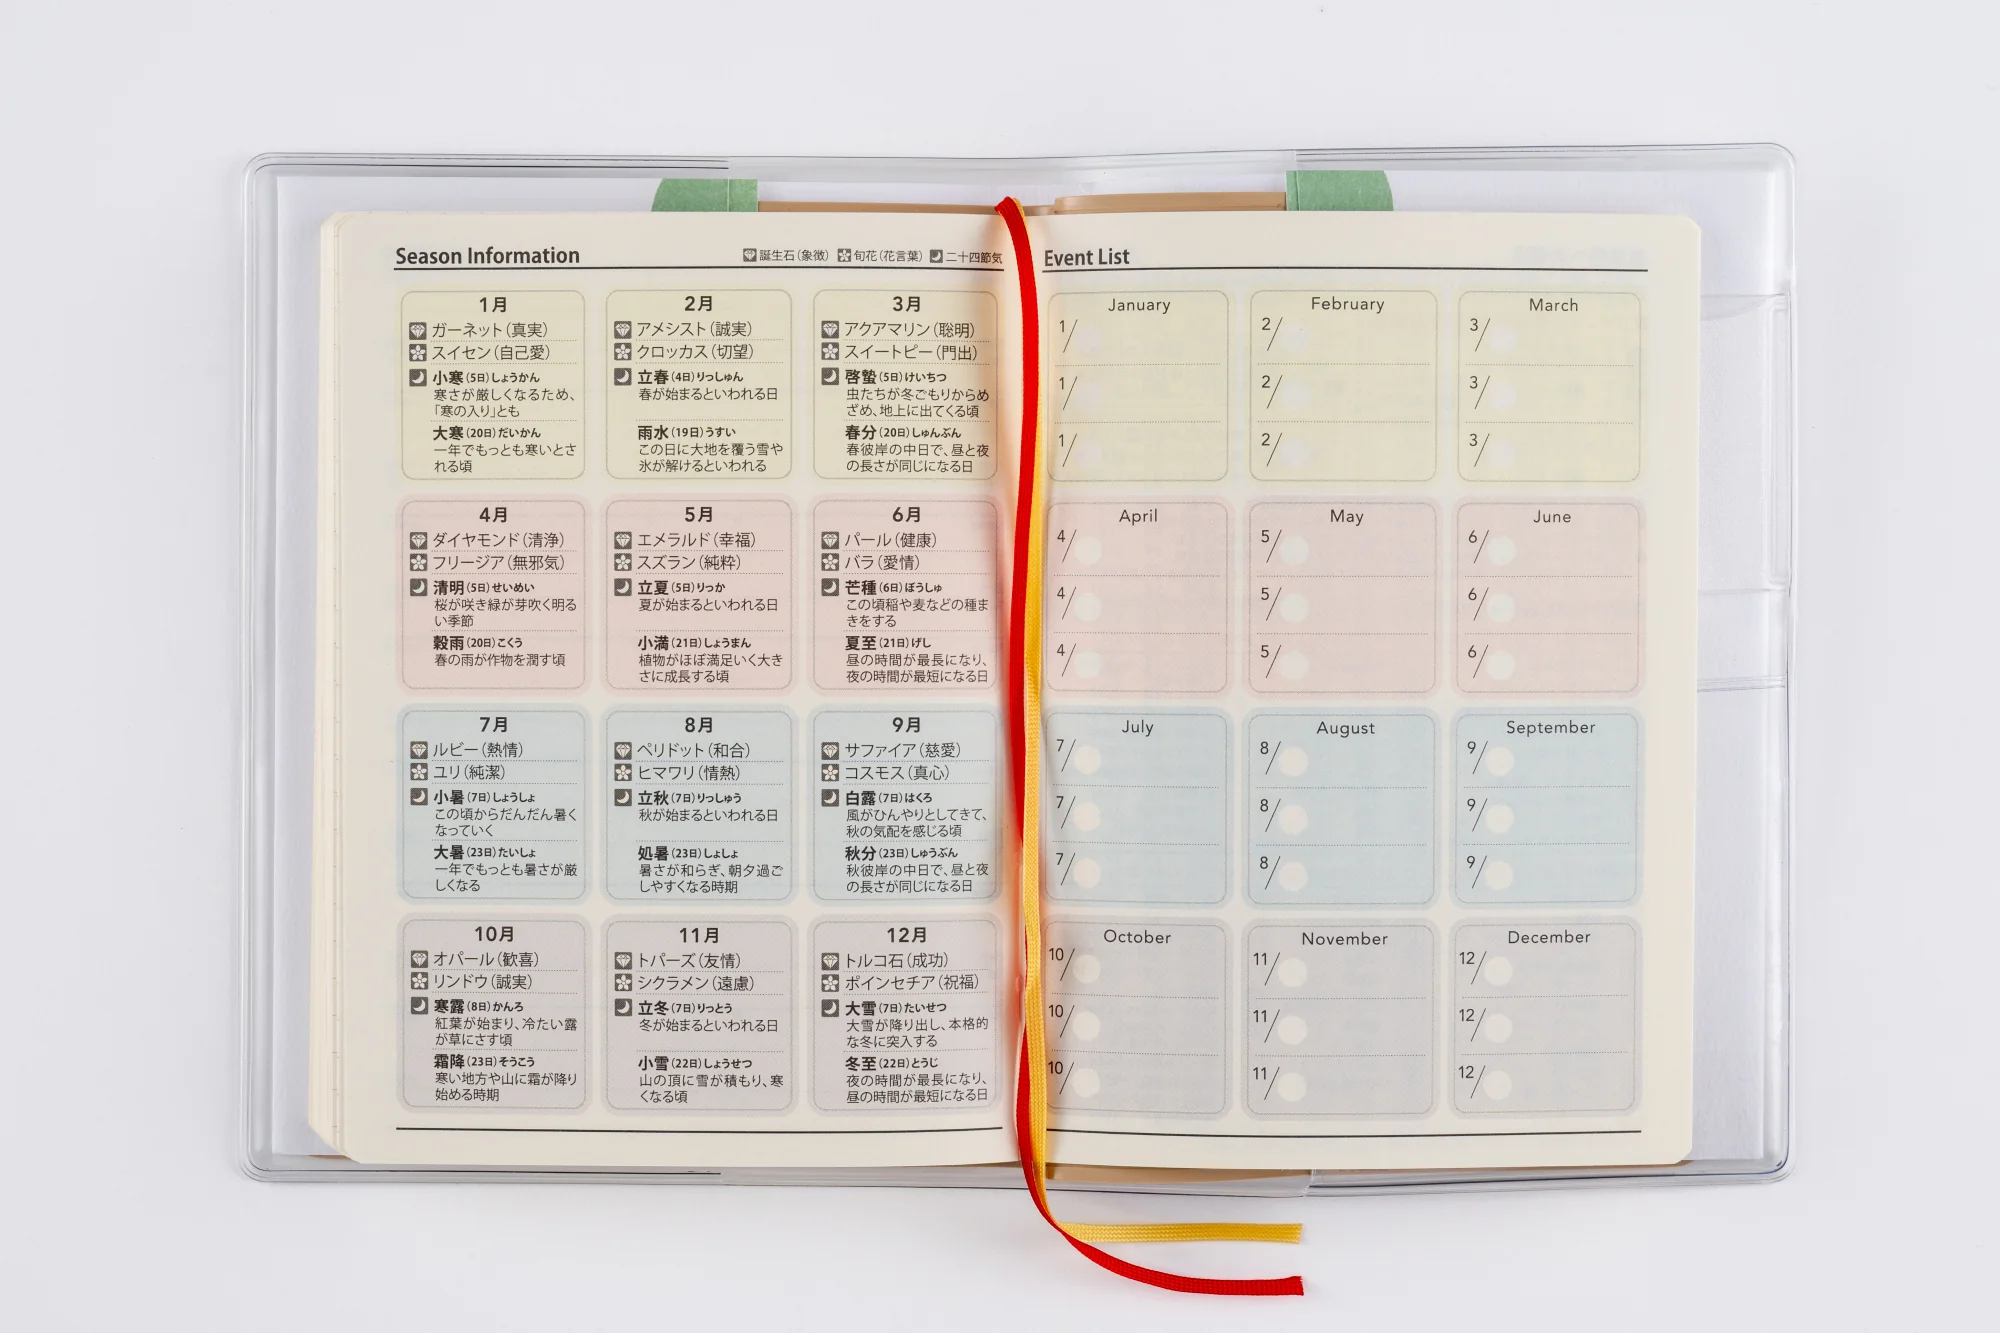 Season Information
誕生石(象徴) 旬花(花言葉) 二十四節気
1月
ガーネット(真実)
スイセン(自己愛)
小寒(5日)しょうかん
寒さが厳しくなるため、
「寒の入り」とも
大寒(20日)だいかん
一年でもっとも寒いとさ
れる頃
2月
アメシスト(誠実)
クロッカス(切望)
立春(4日)りっしゅん
春が始まるといわれる日
雨水(19日)うすい
この日に大地を覆う雪や
氷が解けるといわれる
3月
アクアマリン(聡明)
スイートピー(門出)
啓蟄(5日)けいちつ
虫たちが冬ごもりからめ
ざめ、地上に出てくる頃
春分(20日)しゅんぶん
春彼岸の中日で、昼と夜
の長さが同じになる日
4月
ダイヤモンド(清浄)
フリージア(無邪気)
清明(5日)せいめい
桜が咲き緑が芽吹く明る
い季節
穀雨(20日)こくう
春の雨が作物を潤す頃
5月
エメラルド(幸福)
スズラン(純粋)
立夏(5日)りっか
夏が始まるといわれる日
小満(21日)しょうまん
植物がほぼ満足いく大き
さに成長する頃
6月
パール(健康)
バラ(愛情)
芒種(6日)ぼうしゅ
この頃稲や麦などの種ま
きをする
夏至(21日)げし
昼の時間が最長になり、
夜の時間が最短になる日
7月
ルビー(熱情)
ユリ(純潔)
小暑(7日)しょうしょ
この頃からだんだん暑く
なっていく
大暑(23日)たいしょ
一年でもっとも暑さが厳
しくなる
8月
ペリドット(和合)
ヒマワリ(情熱)
立秋(7日)りっしゅう
秋が始まるといわれる日
処暑(23日)しょしょ
暑さが和らぎ、朝夕過ご
しやすくなる時期
9月
サファイア(慈愛)
コスモス(真心)
白露(7日)はくろ
風がひんやりとしてきて、
秋の気配を感じる頃
秋分(23日)しゅうぶん
秋彼岸の中日で、昼と夜
の長さが同じになる日
10月
オパール(歓喜)
リンドウ(誠実)
寒露(8日)かんろ
紅葉が始まり、冷たい露
が草にさす頃
霜降(23日)そうこう
寒い地方や山に霜が降り
始める時期
11月
トパーズ(友情)
シクラメン(遠慮)
立冬(7日)りっとう
冬が始まるといわれる日
小雪(22日)しょうせつ
山の頂に雪が積もり、寒
くなる頃
12月
トルコ石(成功)
ポインセチア(祝福)
大雪(7日)たいせつ
大雪が降り出し、本格的
な冬に突入する
冬至(22日)とうじ
夜の時間が最長になり、
昼の時間が最短になる日
Event List
January
1/
1/
1/
February
2/
2/
2/
March
3/
3/
3/
April
4/
4/
4/
May
5/
5/
5/
June
6/
6/
6/
July
7/
7/
7/
August
8/
8/
8/
September
9/
9/
9/
October
10/
10/
10/
November
11/
11/
11/
December
12/
12/
12/